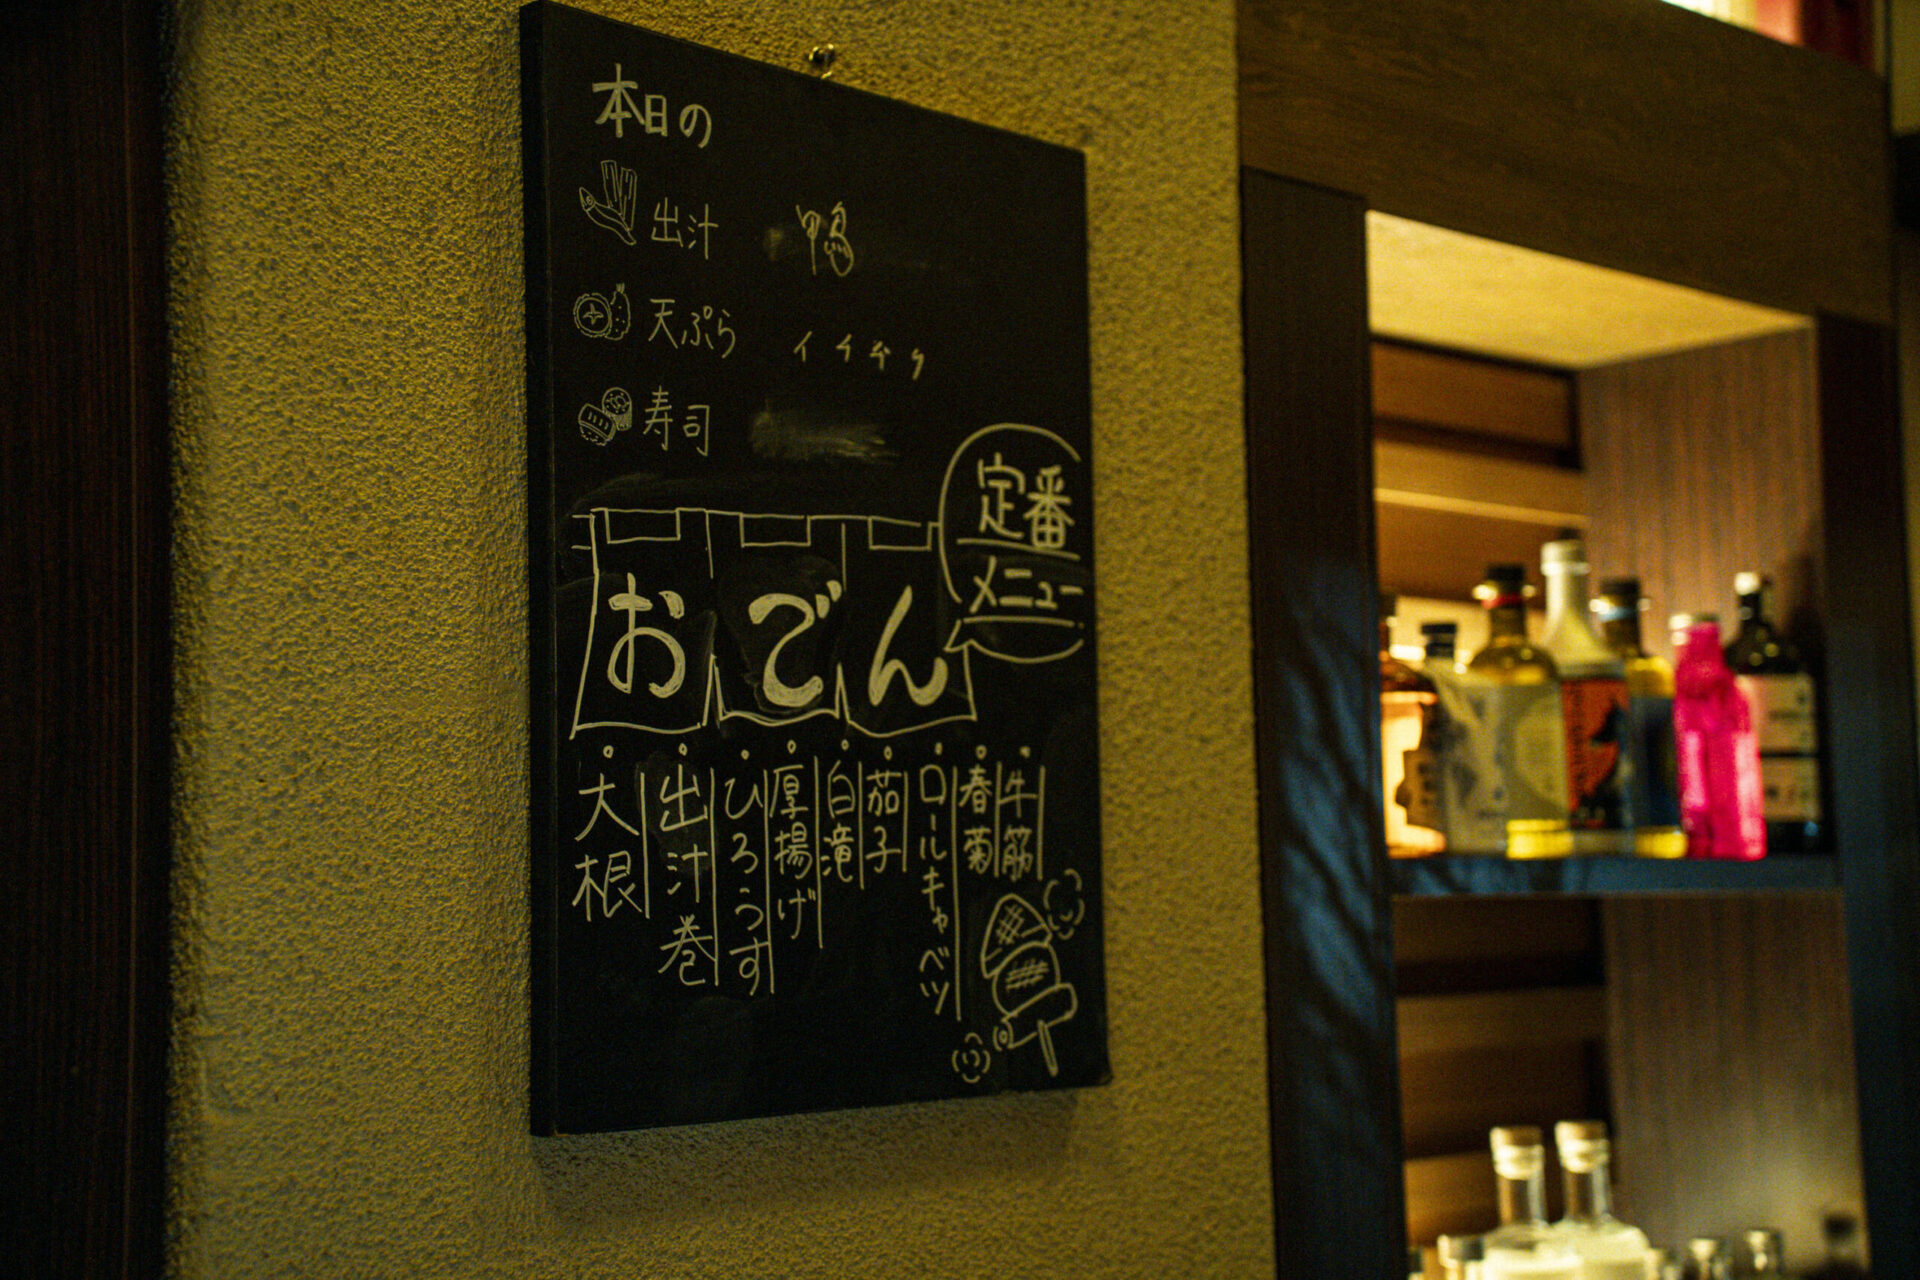 本日の
出汁 鴨
天ぷら イチヂク
寿司
定番
メニュー
おでん
大根
出汁巻
ひろうす
厚揚げ
白滝
茄子
ロールキャベツ
春菊
牛筋